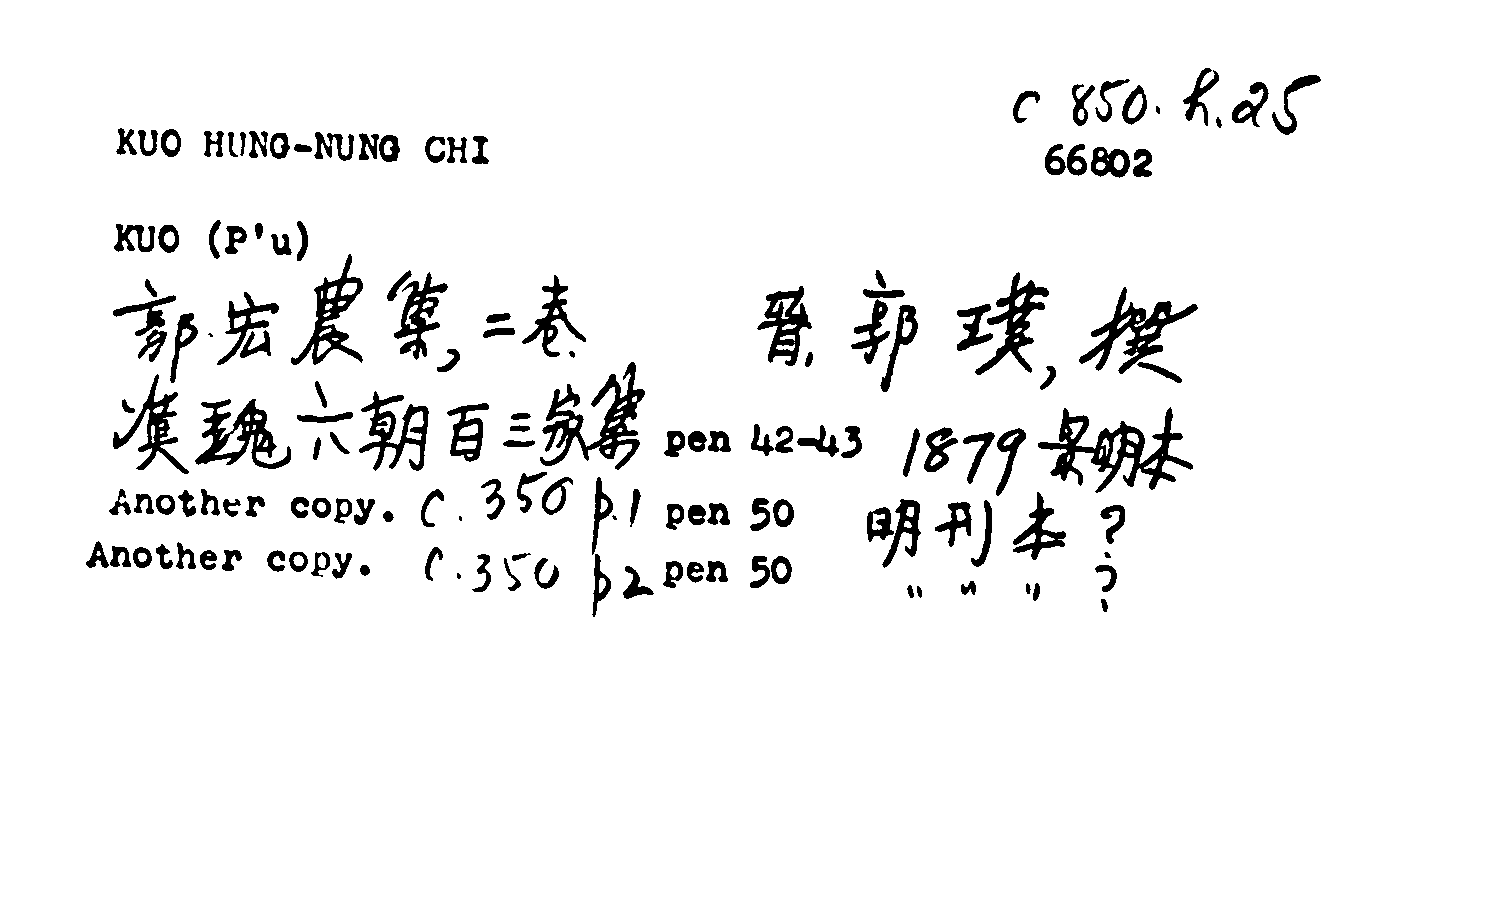 C 850. h. 25
KUO HUNG-NUNG CHI
66802
KUO (P'u)
郭宏農集, 二巻. 晉, 郭璞, 撰
漢魏六朝百三家集 pen 42-43 1879 景明本
Another copy. C. 350 p.1 pen 50 明刊本?
Another copy. C. 350 p2 pen 50 〃 〃 〃 ?